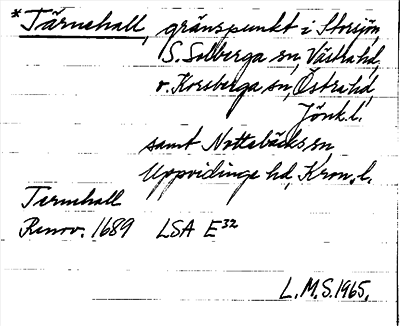 *Tärnehall, gränspunkt i Storsjön,
S. Solberga sn, Västra hd,
o. Korsberga sn, Östra hd,
Jönk. l.
samt Nottebäcks sn
Uppvidinge hd, Kron. l.
Ternehall
Renov. 1689 LSA E32
L.M.S. 1965.